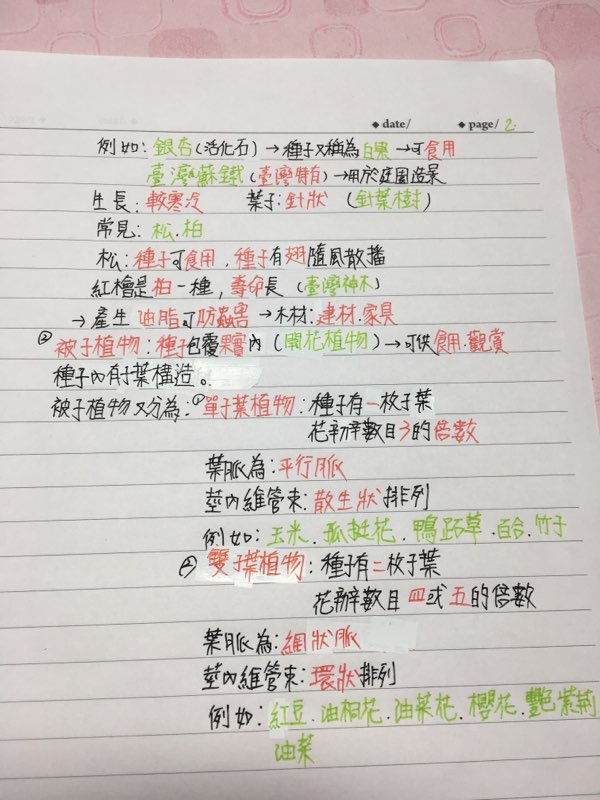 ◆ date/ ◆ page/ 2.
例如:銀杏(活化石)→種子又稱為白果→可食用
臺灣蘇鐵(臺灣特有)→用於庭園造景
生長:較寒冷 葉子:針狀 (針葉樹)
常見:松.柏
松:種子可食用,種子有翅隨風散播
紅檜是柏一種,壽命長(臺灣神木)
→產生油脂可防蟲害→木材:建材.家具
②被子植物:種子包覆果實內(開花植物)→可供食用.觀賞
種子內有子葉構造。
被子植物又分為:①單子葉植物:種子有一枚子葉
花瓣數目3的倍數
葉脈為:平行脈
莖內維管束:散生狀排列
例如:玉米.孤挺花.鴨跖草.百合.竹子
②雙子葉植物:種子有二枚子葉
花瓣數目四或五的倍數
葉脈為:網狀脈
莖內維管束:環狀排列
例如:紅豆.油桐花.油菜花.櫻花.豔紫荊
油菜